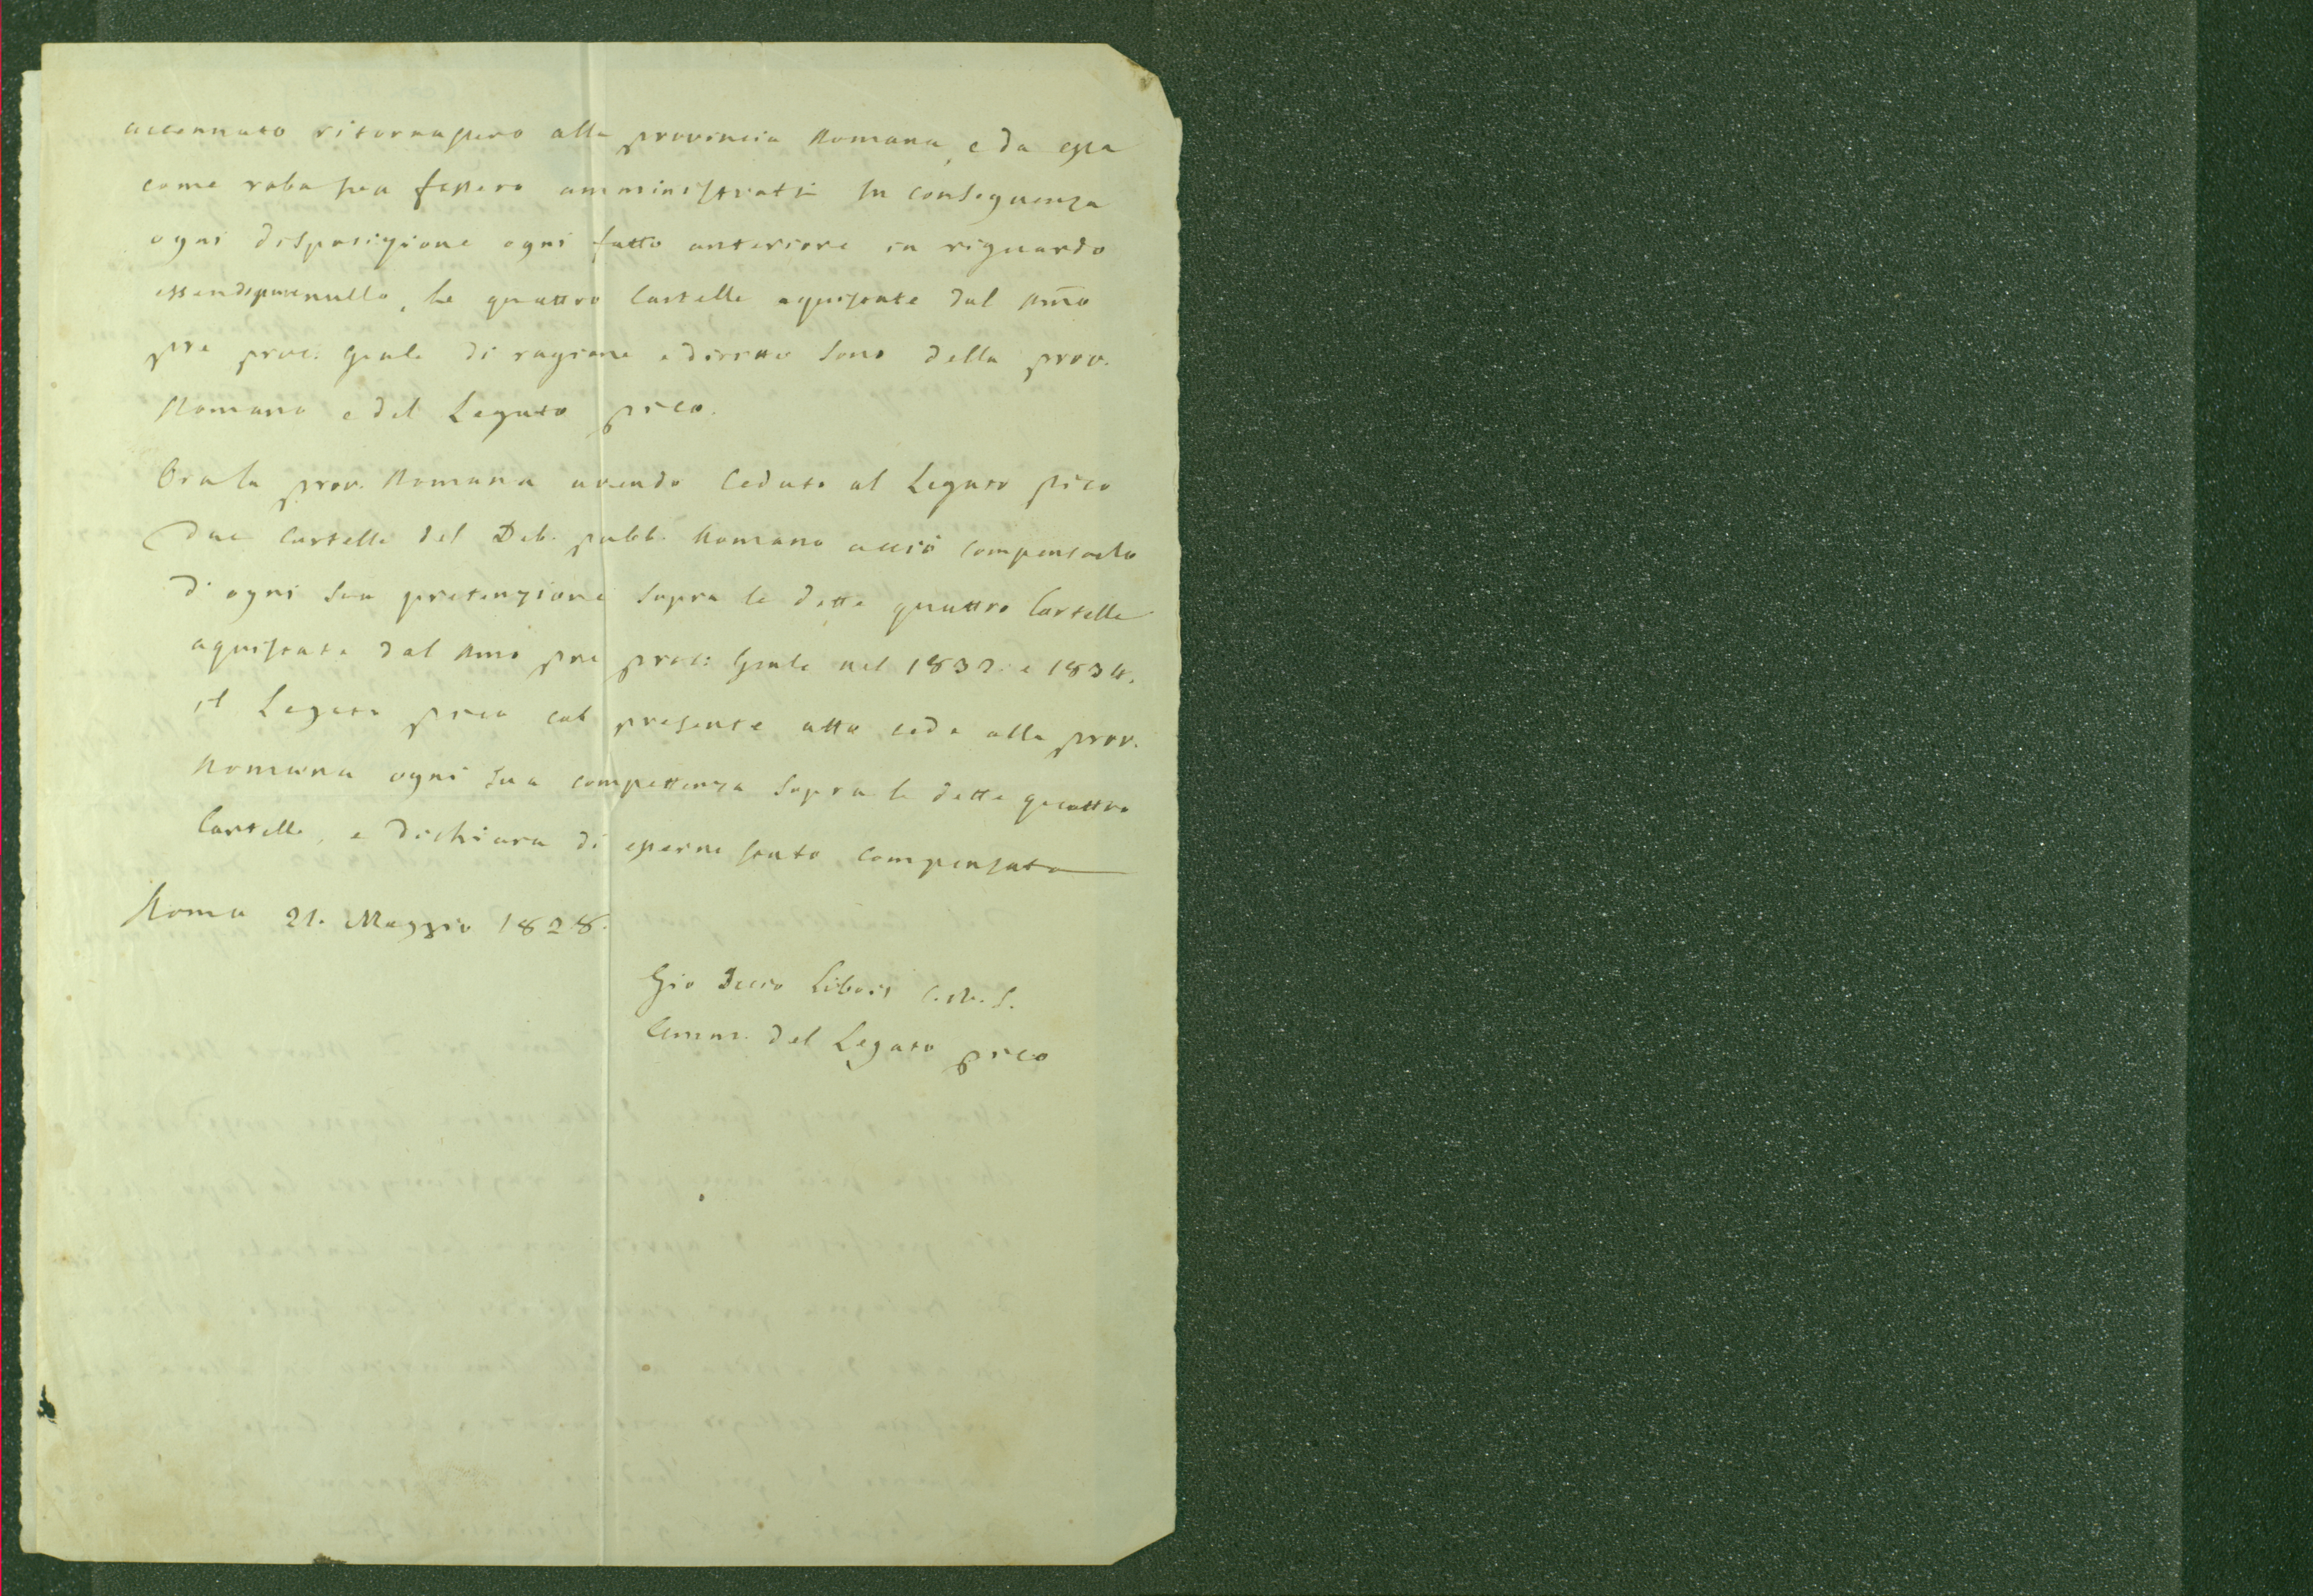 accennato ritornassero alla provincia Romana, e da essa
come roba sua fossero amministrati In conseguenza
ogni disposizione ogni fatto anteriore in riguardo
nullo, Le quattro Cartelle aquistate dal Rmo
pre proc: gnale di ragione e diritto sono della prov.
Romana e del Legato pico.
Ora la prov. Romana avendo ceduto al Legato pico
due Cartelle del Deb. pubb. Romano acciò compensarlo
d'ogni sua pretenzione sopra le dette quattro Cartelle
aquistate dal Rmo pre proc: gnale nel 1832 e 1834.
il Legato pico col presente atto cede alla prov.
Romana ogni sua compettenza sopra le dette quattro
Cartelle, e dichiara di esserne stato compensato
Roma 21. Maggio 1828.
Gio Decio Libois C.R.S.
Amm. del Legato pico